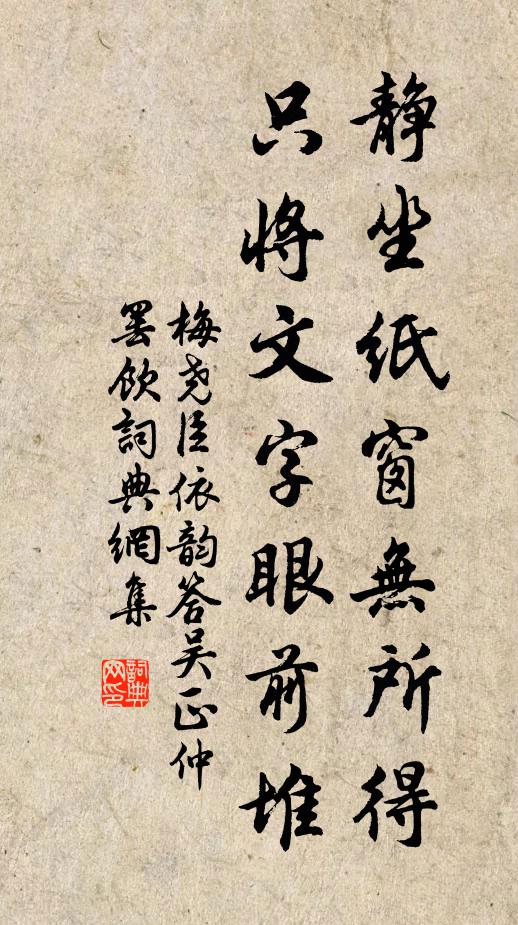 静坐紙窗無所得
只将文字眼前堆
梅尧臣依韵答吴正仲
罢飲詞典網集
詞典网印